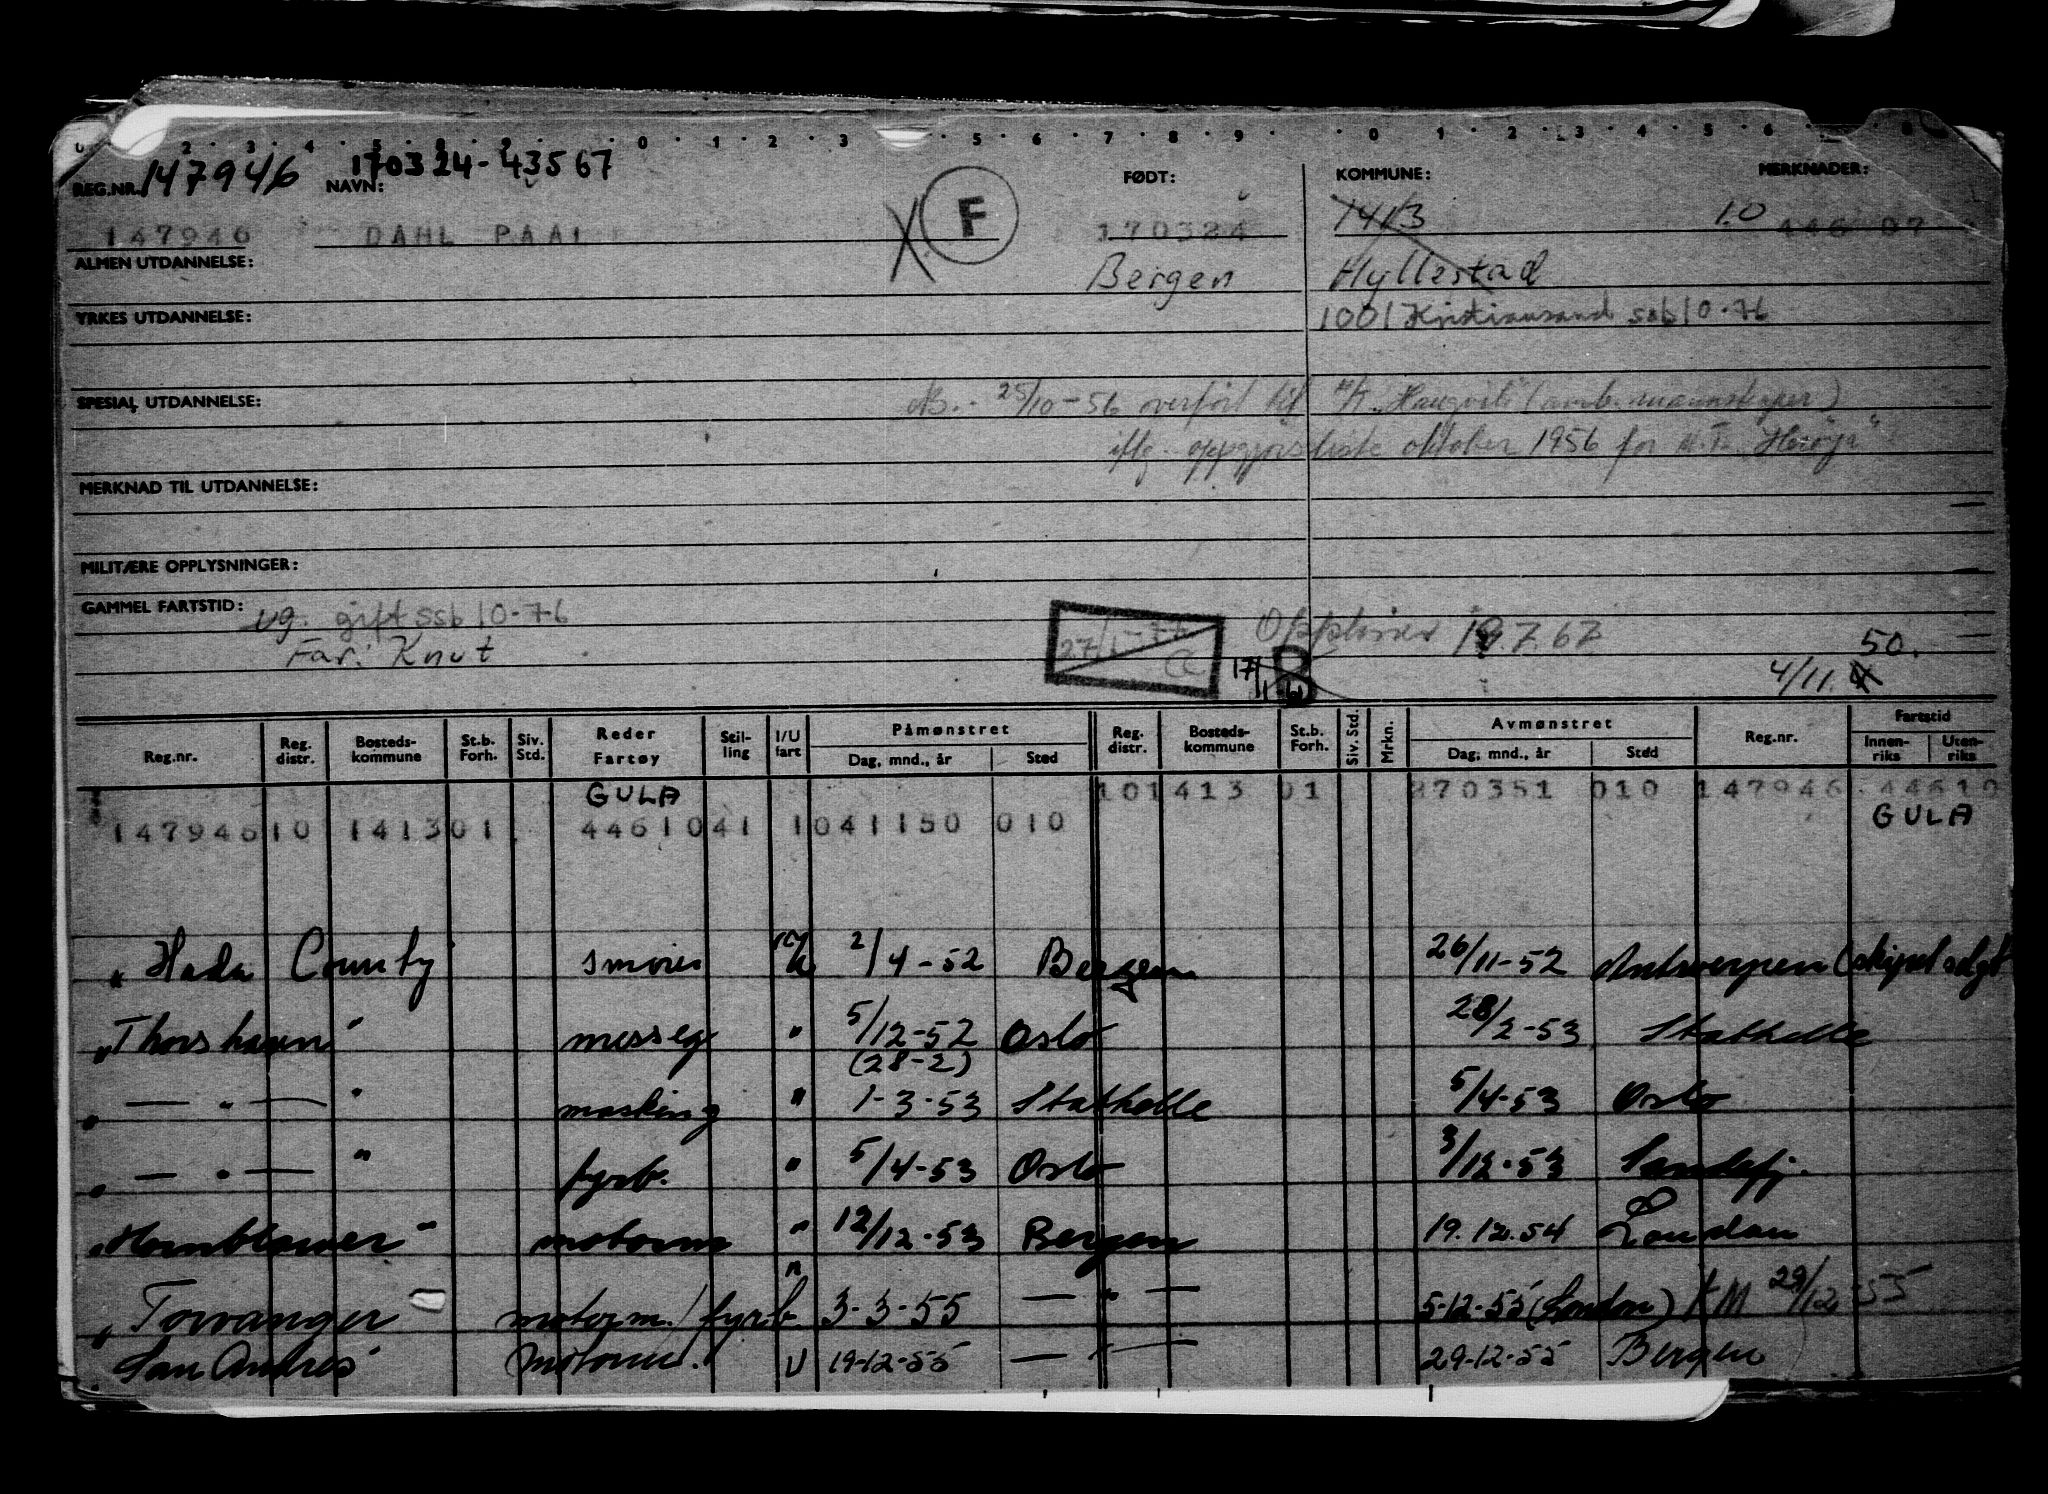 REG.NR. 147946 NAVN: 170324-43567 FØDT: KOMMUNE: MERKNADER:
147946 DAHL PAAL X F 170324 1413 10 446 07
ALMEN UTDANNELSE: Bergen Hyllestad
YRKES UTDANNELSE: 1001 Kristiansand ssb 10-76
SPESIAL UTDANNELSE: 25/10-56 overført til
iflg. oppgjørsliste oktober 1956 for M.T.
MERKNAD TIL UTDANNELSE:
MILITÆRE OPPLYSNINGER:
GAMMEL FARTSTID: ug. gift ssb 10-76
Far: Knut
50.
4/11
Reg.nr. Reg. distr. Bosteds-kommune St.b. Forh. Siv. Std. Reder Fartøy Stil-ling I/U fart Påmønstret Dag, mnd., år Sted Reg. distr. Bosteds-kommune St.b. Forh. Siv. Std. Mrkn. Avmønstret Dag, mnd., år Sted Reg.nr. Fartstid Innen-riks Uten-riks
GULA 101413 01 170351 010 147946 44610
147946 10 1413 01 44610 41 1 041150 010 GULA
" Hada County smører 2/4-52 Bergen 26/11-52 Antwerpen (skipet solgt
" Thorshavn" messeg " 5/12-52 Oslo 28/2-53 Stathelle
(28-2)
" — " — " masking " 1-3-53 Stathelle 5/4-53 Oslo
" — " — " fyrb. " 5/4-53 Oslo 3/12-53 Sandefj.
" Hornblower" motorm " 12/12-53 Bergen 19.12.54 London
" Torvanger motorm./fyrb. " 3-3-55 — " — 5-12-55 (London) KM 29/12-55
San Andres" Motorm. U 19-12-55 — " — 29-12-55 Bergen